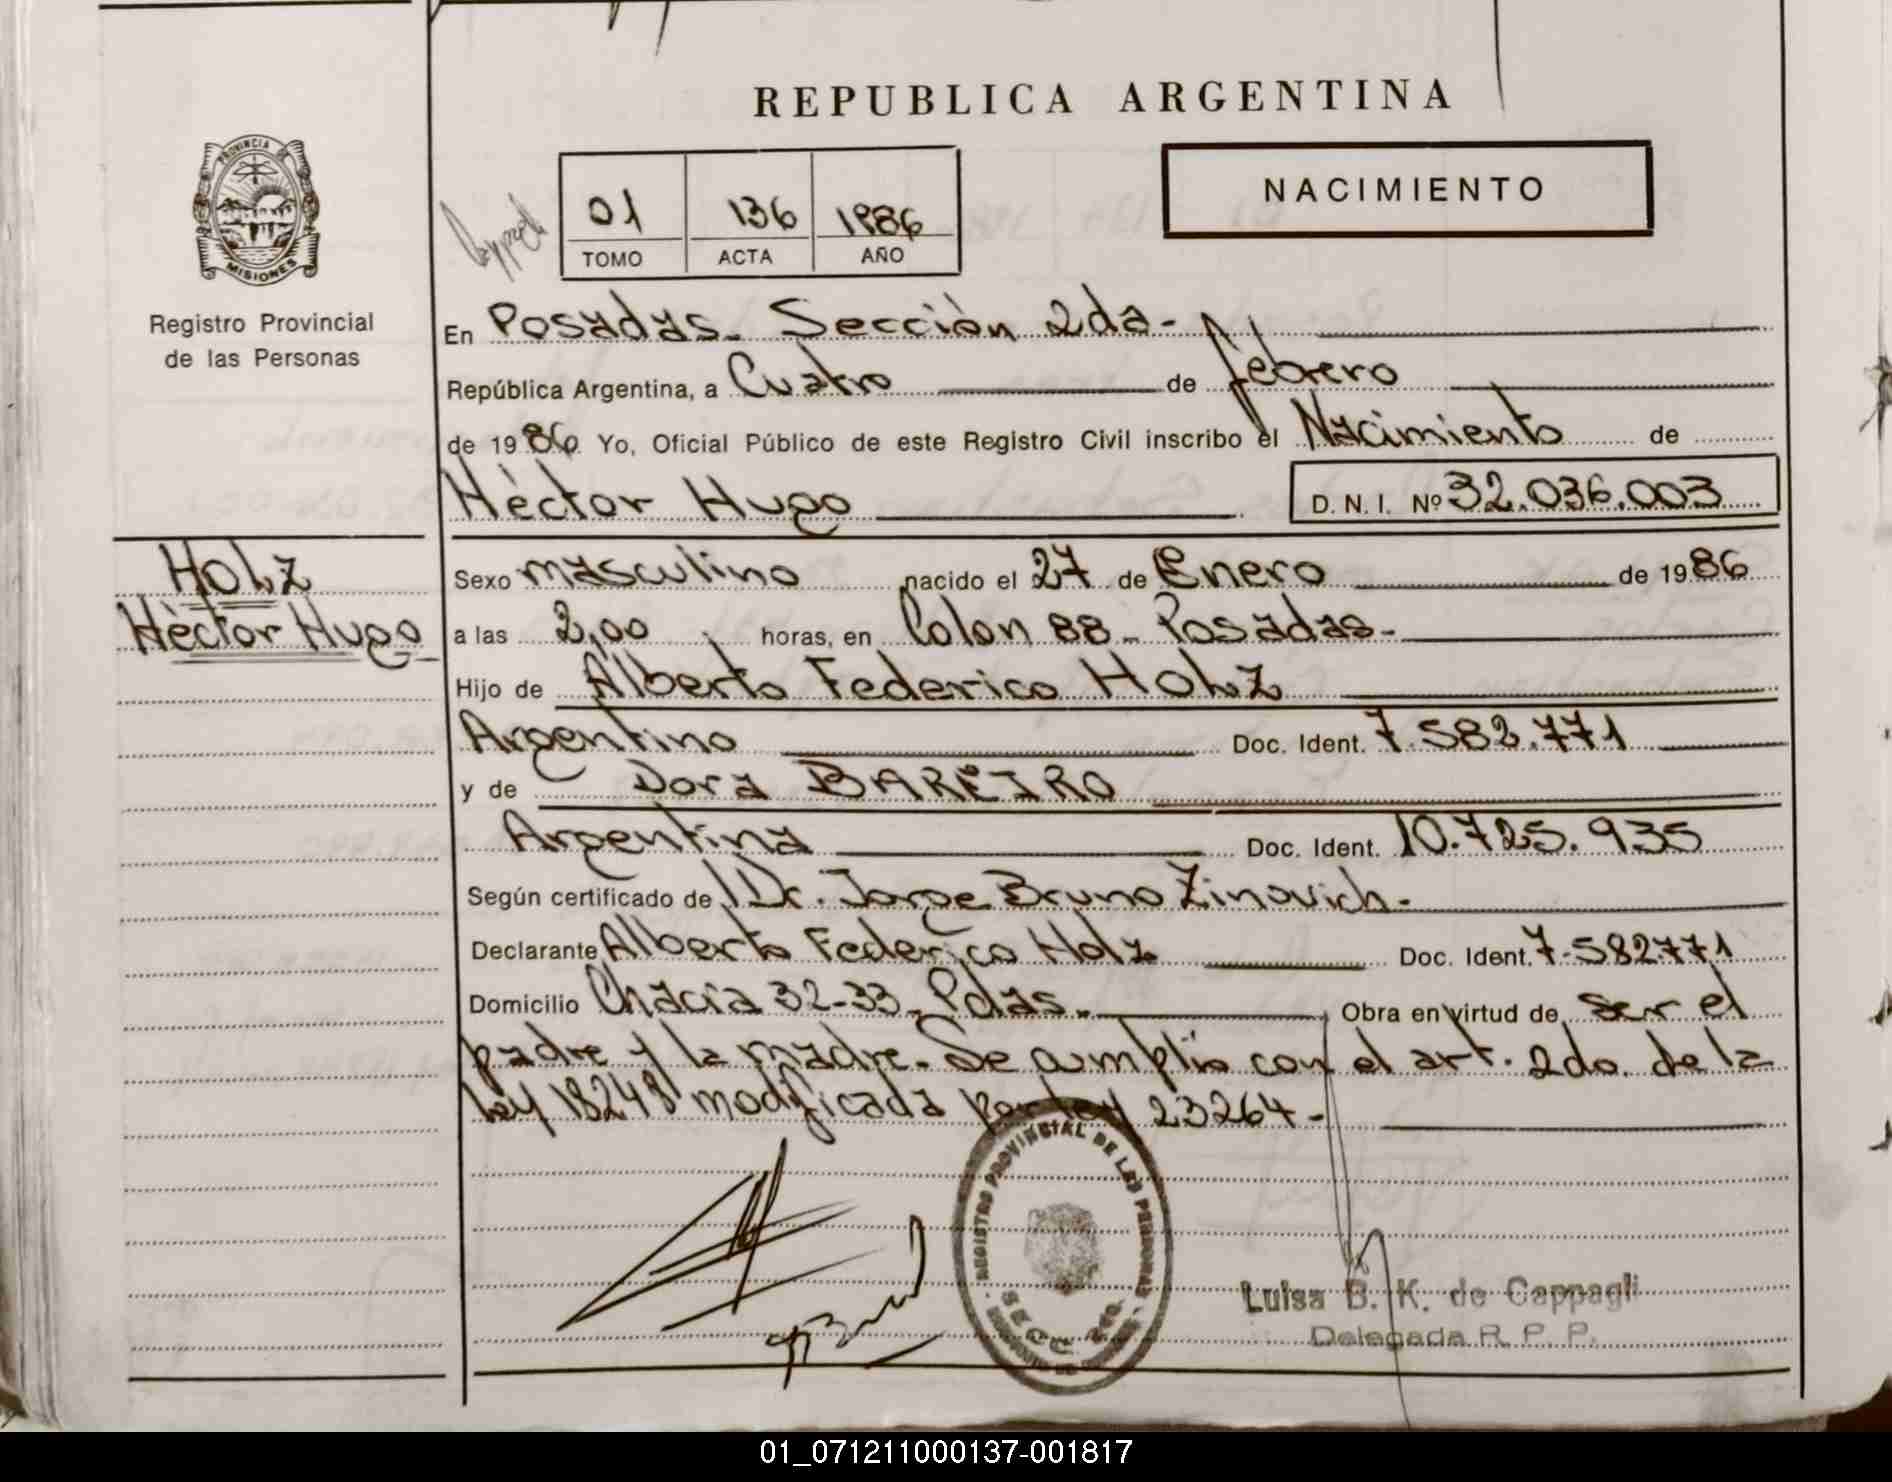 REPUBLICA ARGENTINA
PROVINCIA DE
MISIONES
Registro Provincial
de las Personas
01 136 1986
TOMO ACTA AÑO
NACIMIENTO
En Posadas - Sección 2da -
República Argentina, a Cuatro de febrero
de 1986 Yo, Oficial Público de este Registro Civil inscribo el Nacimiento de
Héctor Hugo D. N. I. Nº 32.036.003
HOLZ
Héctor Hugo
Sexo masculino nacido el 27 de Enero de 1986
a las 2,00 horas, en Colon 88 - Posadas -
Hijo de Alberto Federico HOLZ
Argentino Doc. Ident. 7.582.771
y de Dora BAREIRO
Argentina Doc. Ident. 10.725.935
Según certificado de Dr. Jorge Bruno Zinovich -
Declarante Alberto Federico Holz Doc. Ident. 7.582.771
Domicilio Chacra 32-33 - Pdas. - Obra en virtud de ser el
padre y la madre - Se cumplió con el art. 2do. de la
ley 18248 modificada por ley 23264 -
REGISTRO PROVINCIAL DE LAS PERSONAS
SECC. 2da.
Luisa B. K. de Cappagli
Delegada R. P. P.
01_071211000137-001817